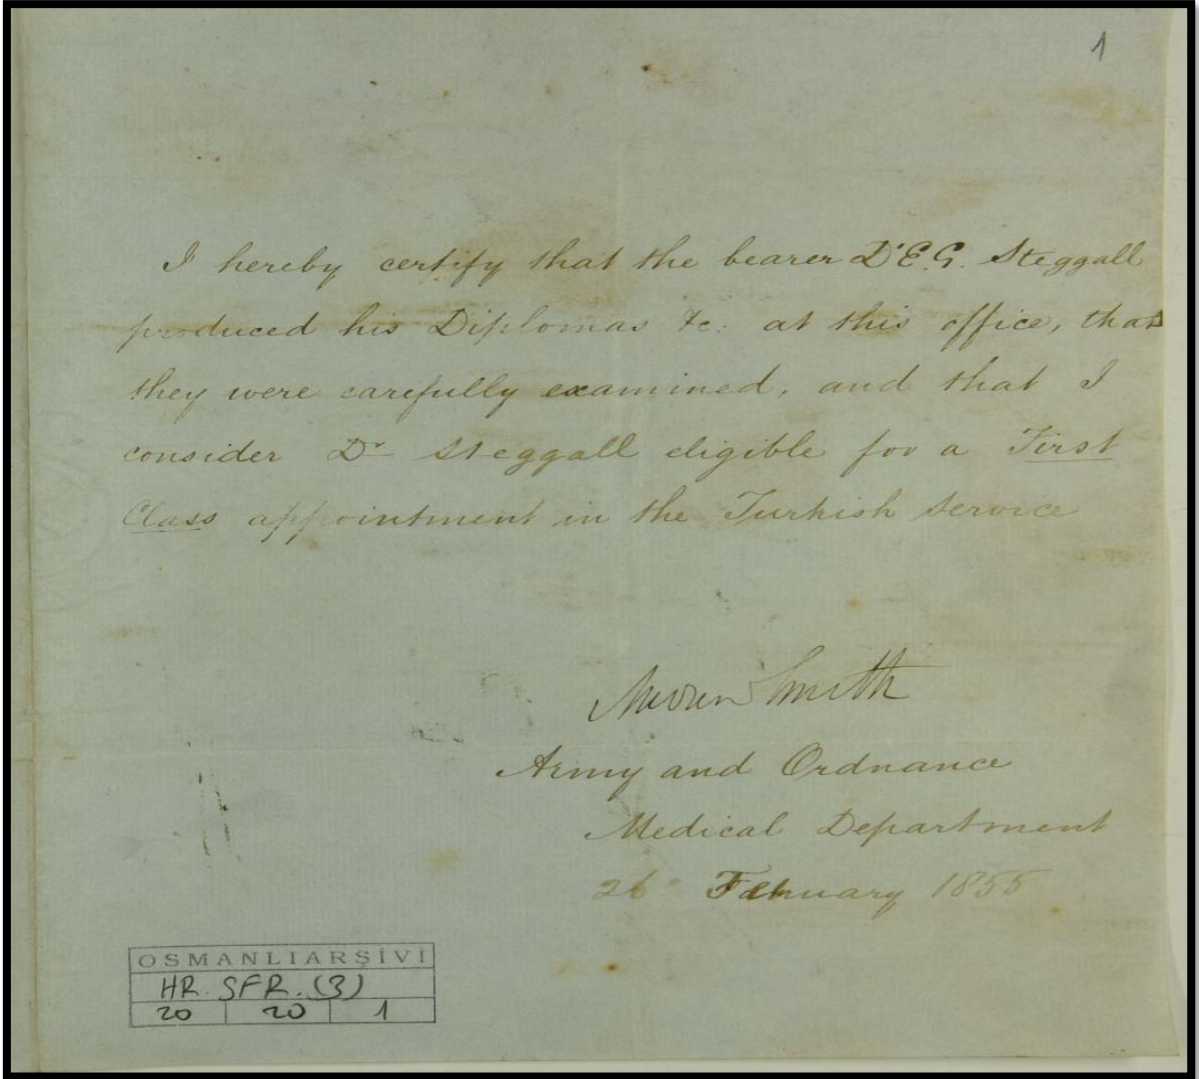 1
I hereby certify that the bearer Dr E. G. Steggall
produced his Diplomas &c. at this office, that
they were carefully examined, and that I
consider Dr Steggall eligible for a First
Class appointment in the Turkish Service
Smith
Army and Ordnance
Medical Department
26 February 1855
OSMANLI ARŞİVİ
HR. SFR. (3)
20 20 1